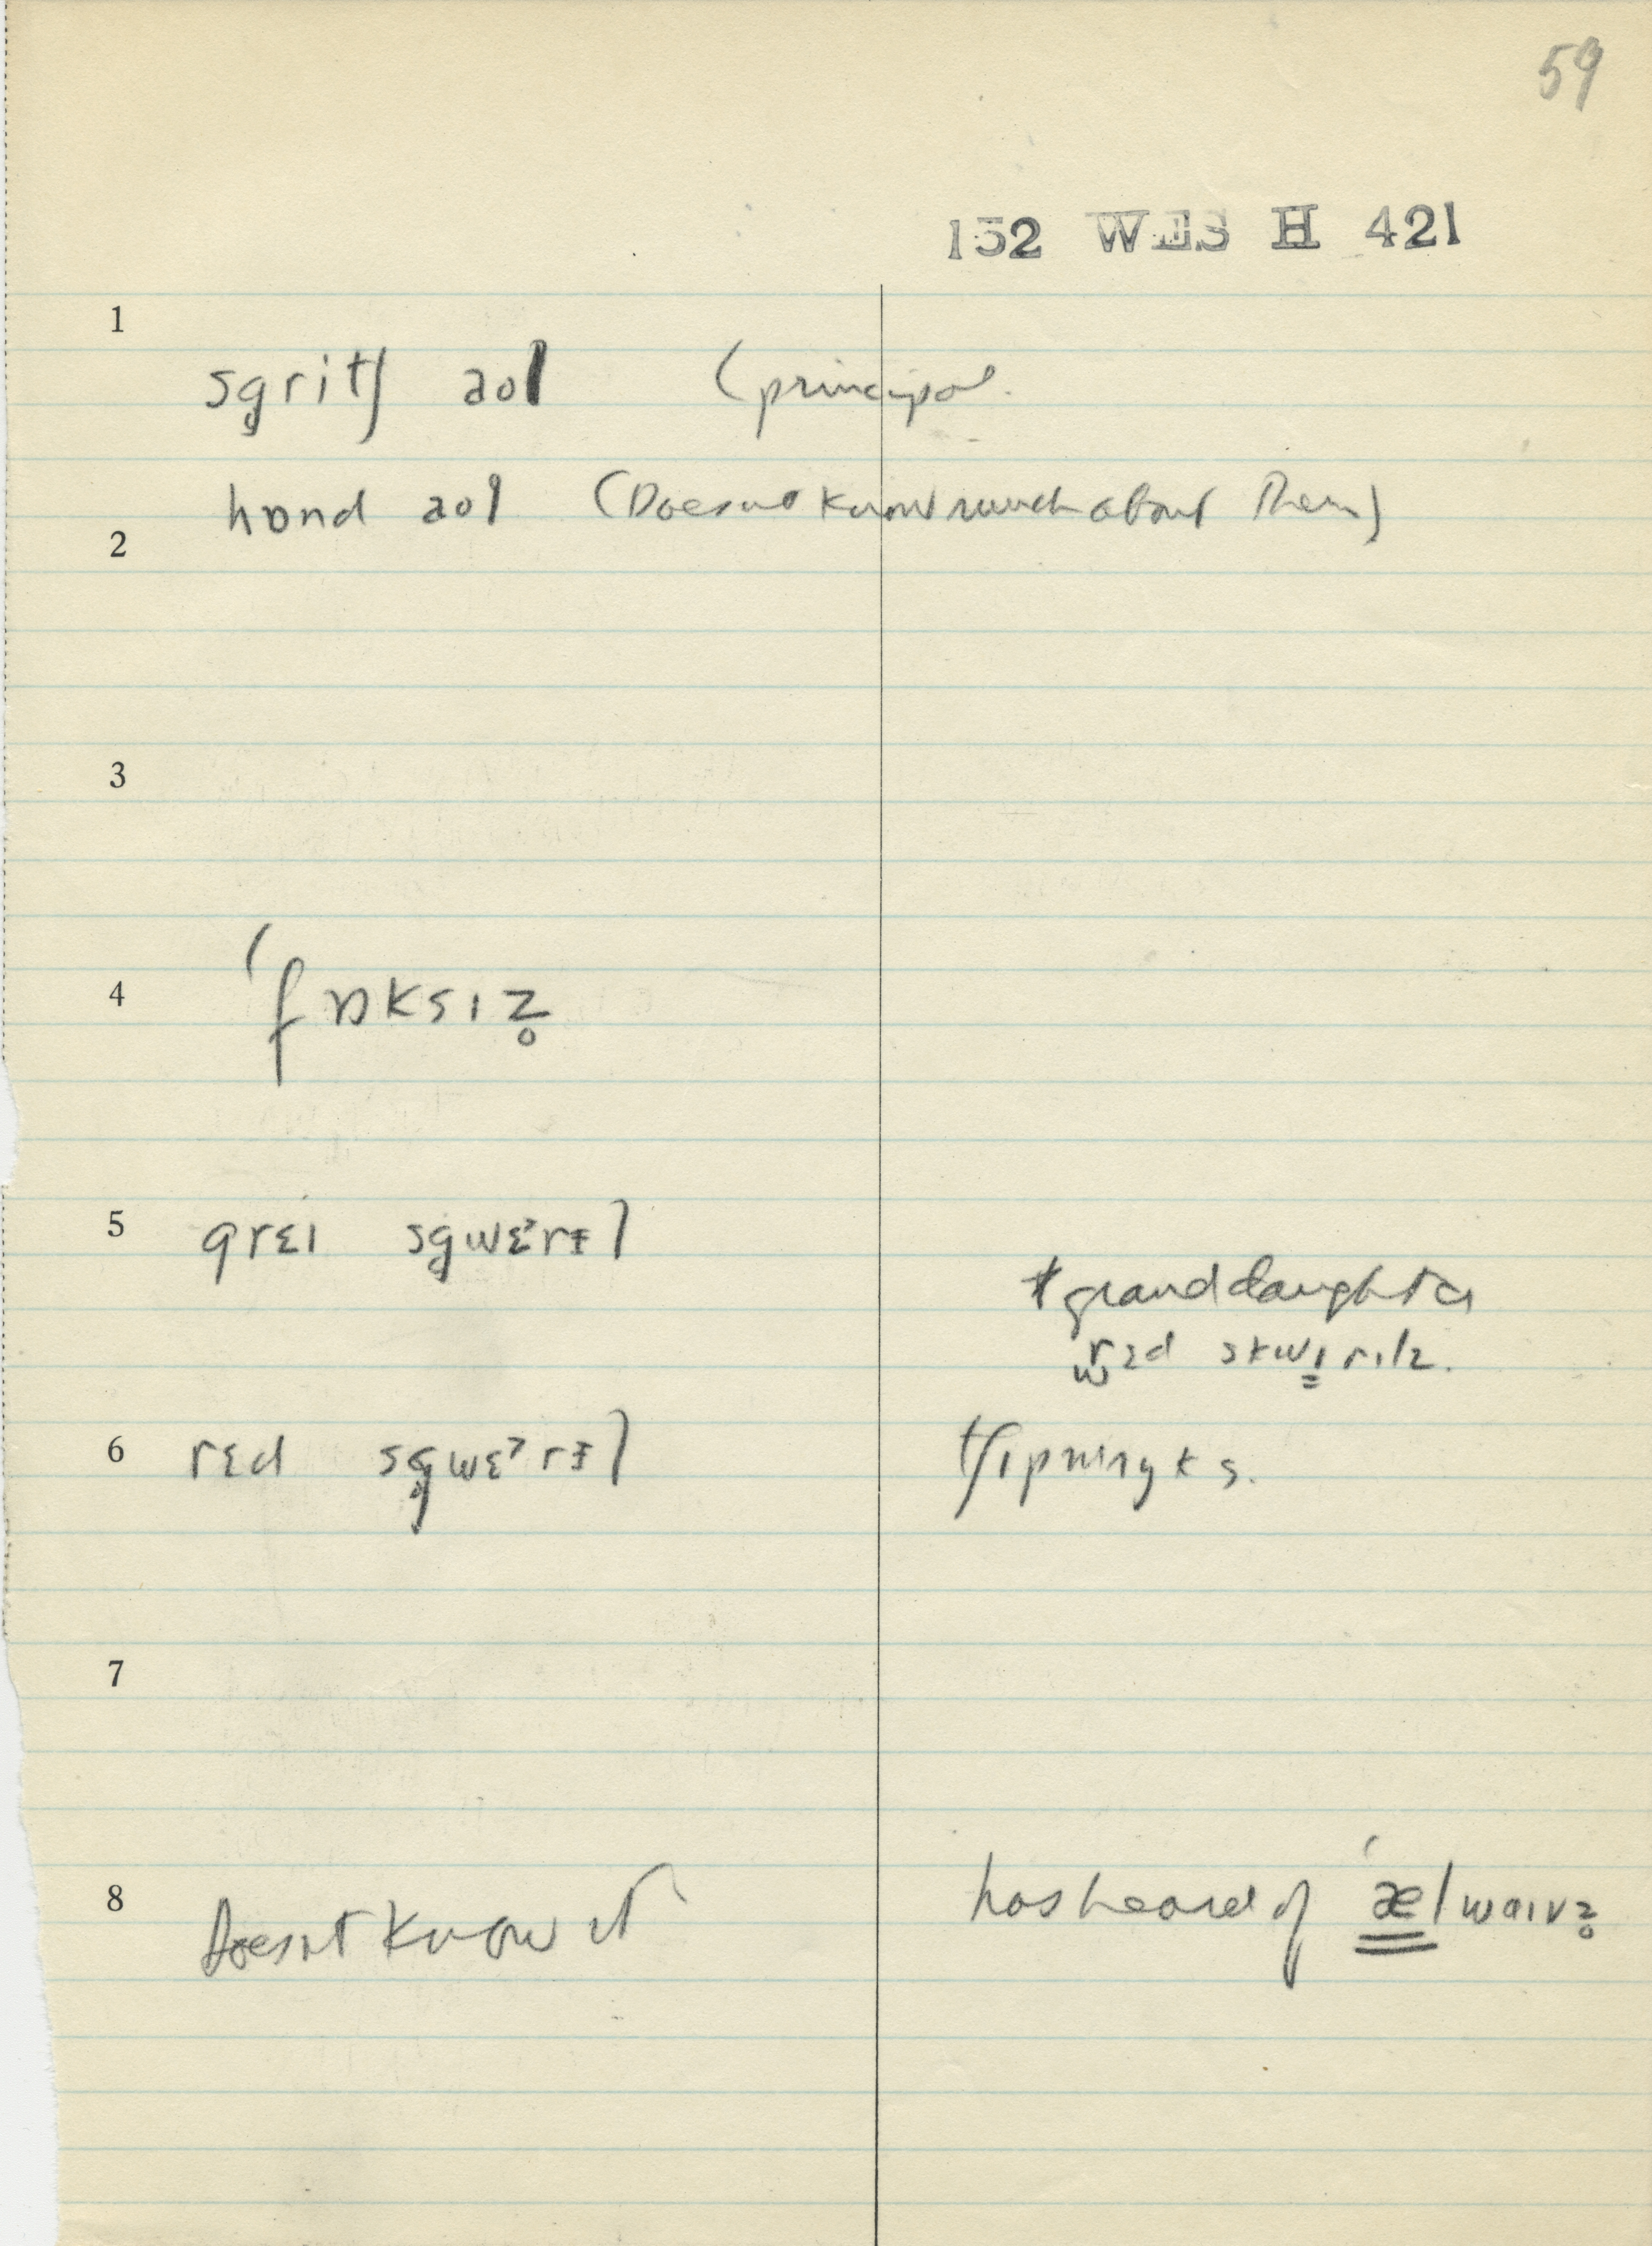 59
152 WES H 421
1
sgritʃ aol (principal.
hɒnd aol (Doesnt know much about them)
2
3
4
ˈfɒksɪz̥
5 grɛɪ sg̥wɛ˞rɪ̵l
* granddaughter
rɛd skwɪrɪlz.
6 rɛd sg̥wɛ˞rɪ̵l tʃɪpmʌŋks.
7
8 Doesnt know it has heard of ˈælwaɪvz̥